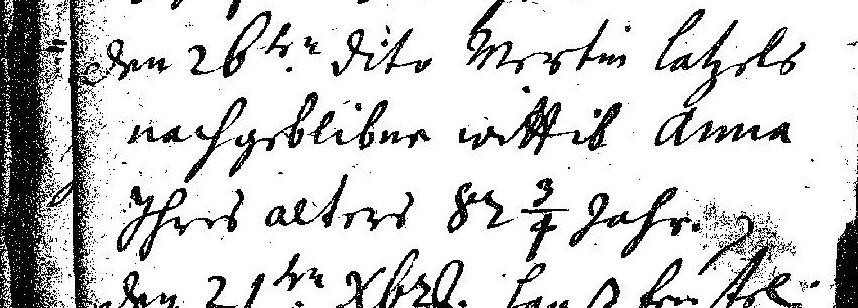 den 26ten dito Mertin latzels
nachgeblibne wittib Anna
Ihres alters 82 3/4 Jahr.
den 21ten Xbr.